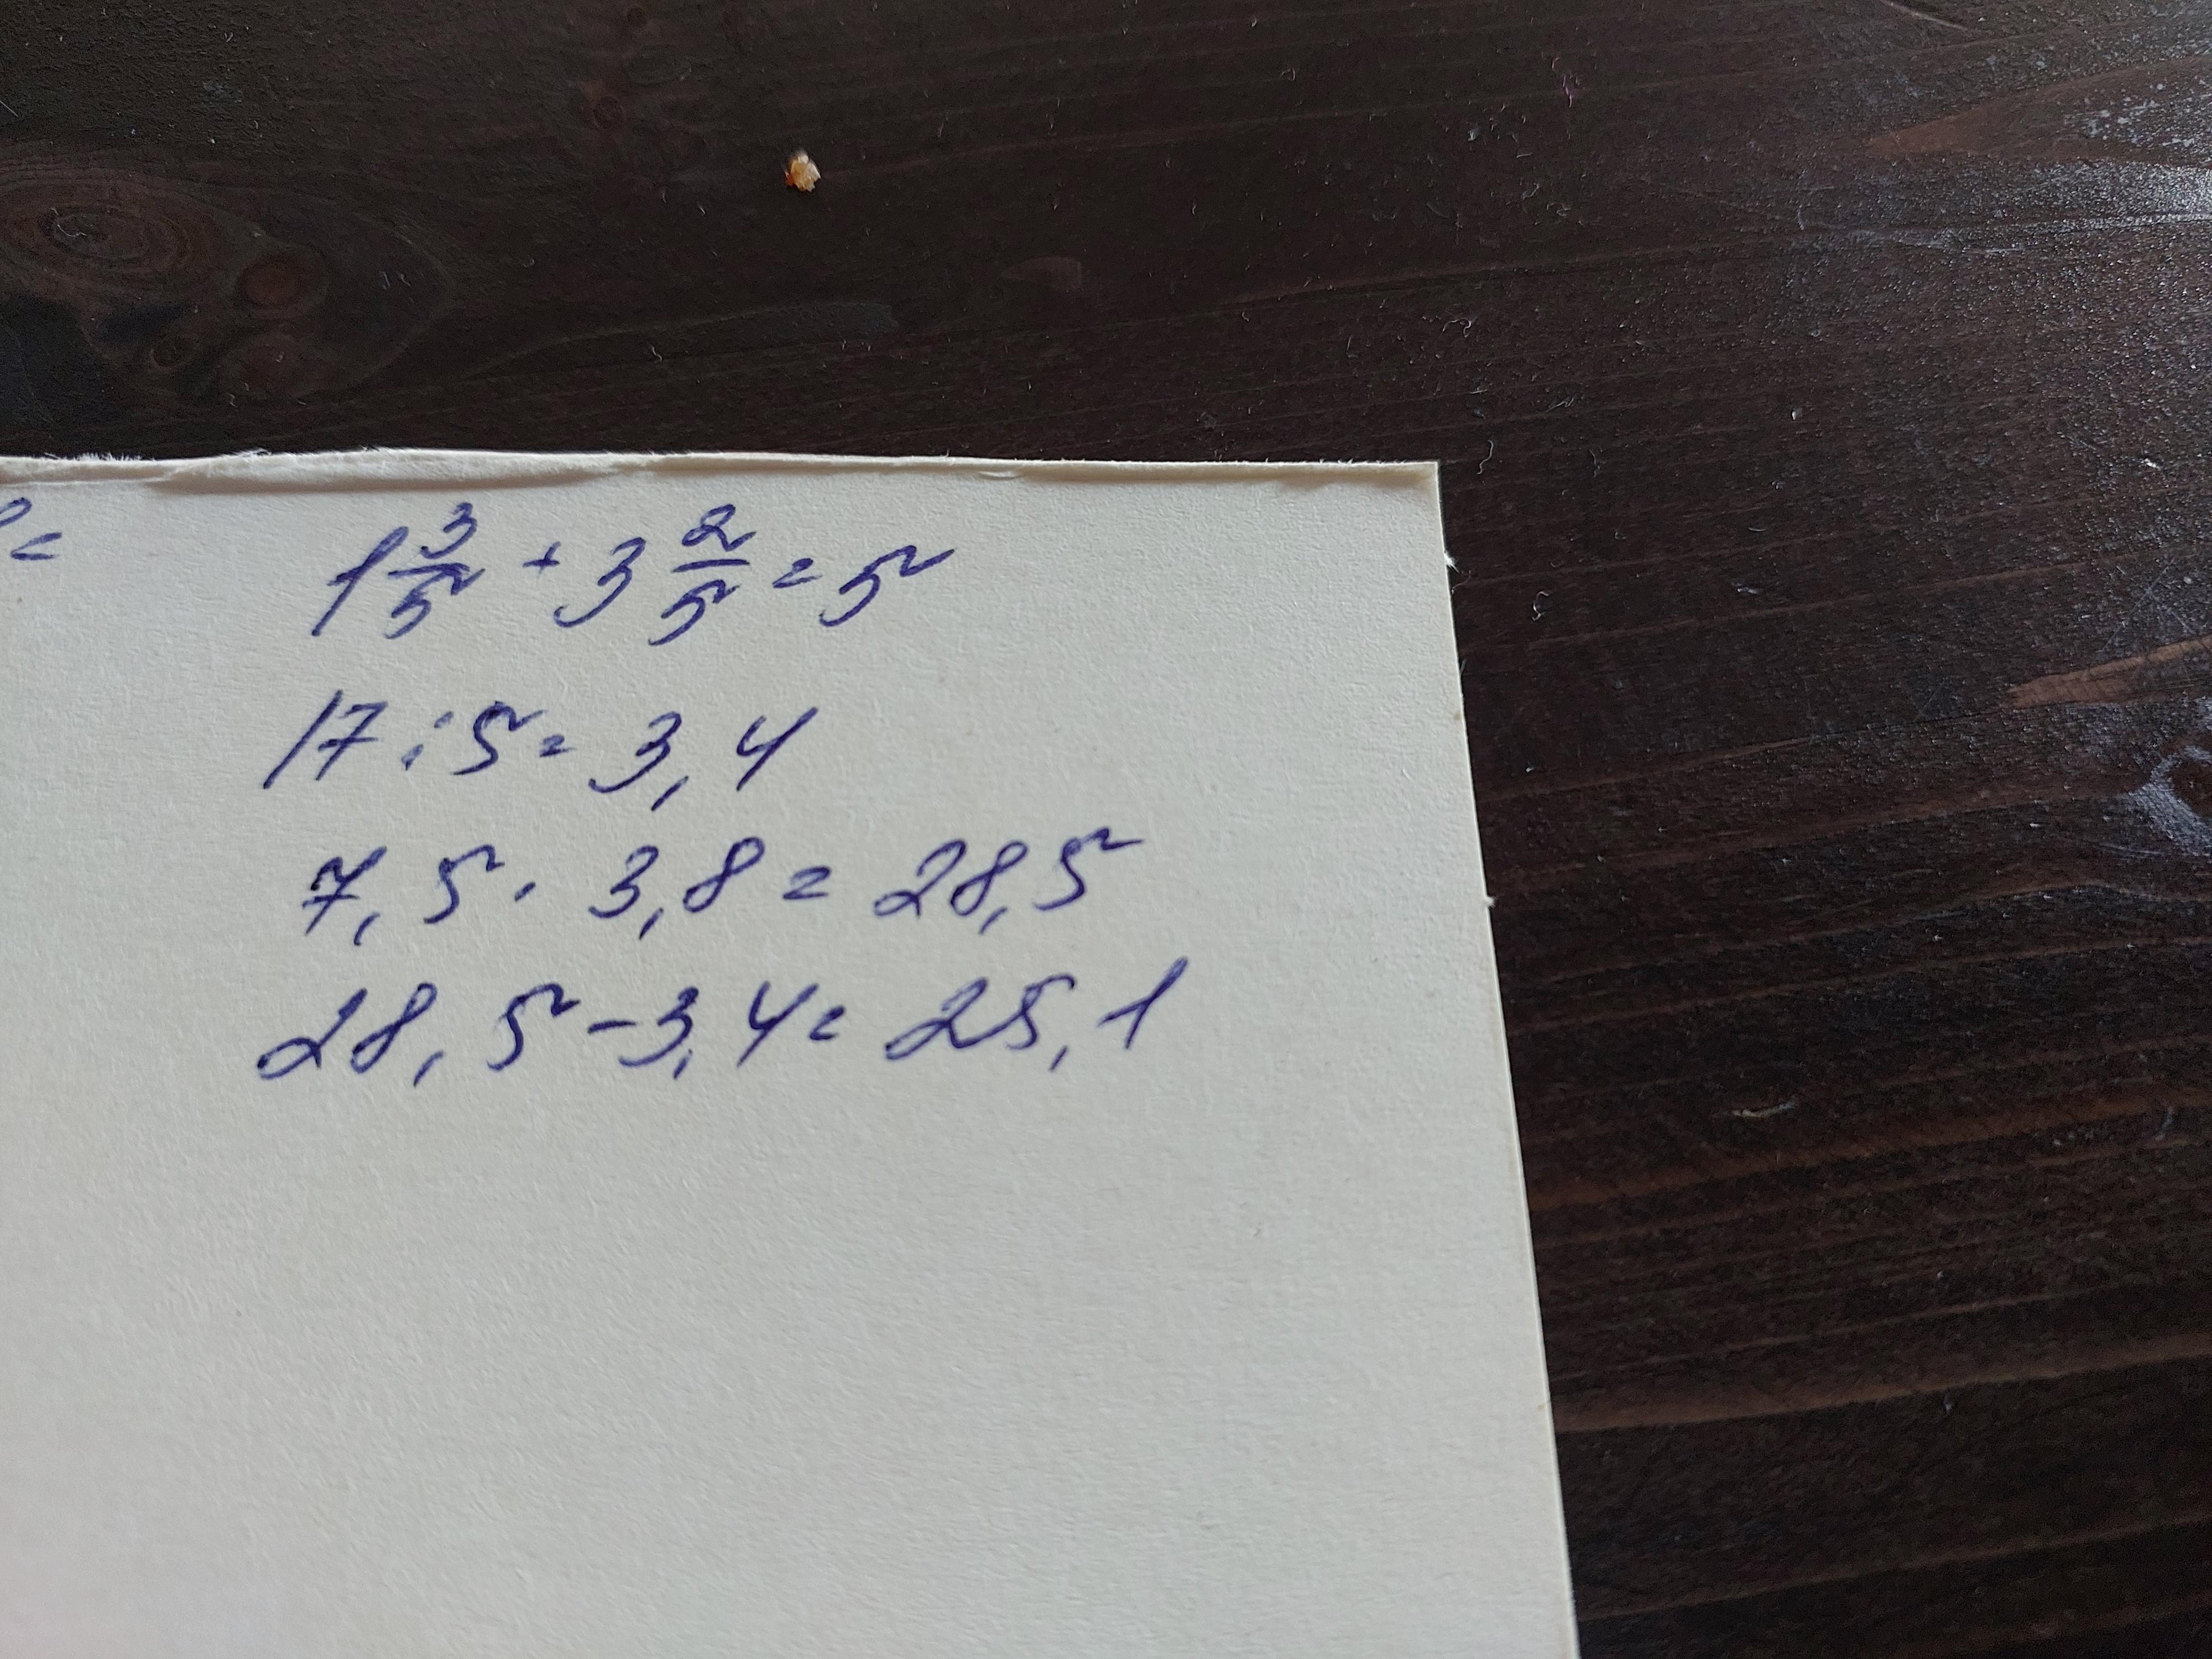 1 3/5 + 3 2/5 = 5
17 : 5 = 3,4
7,5 · 3,8 = 28,5
28,5 - 3,4 = 25,1